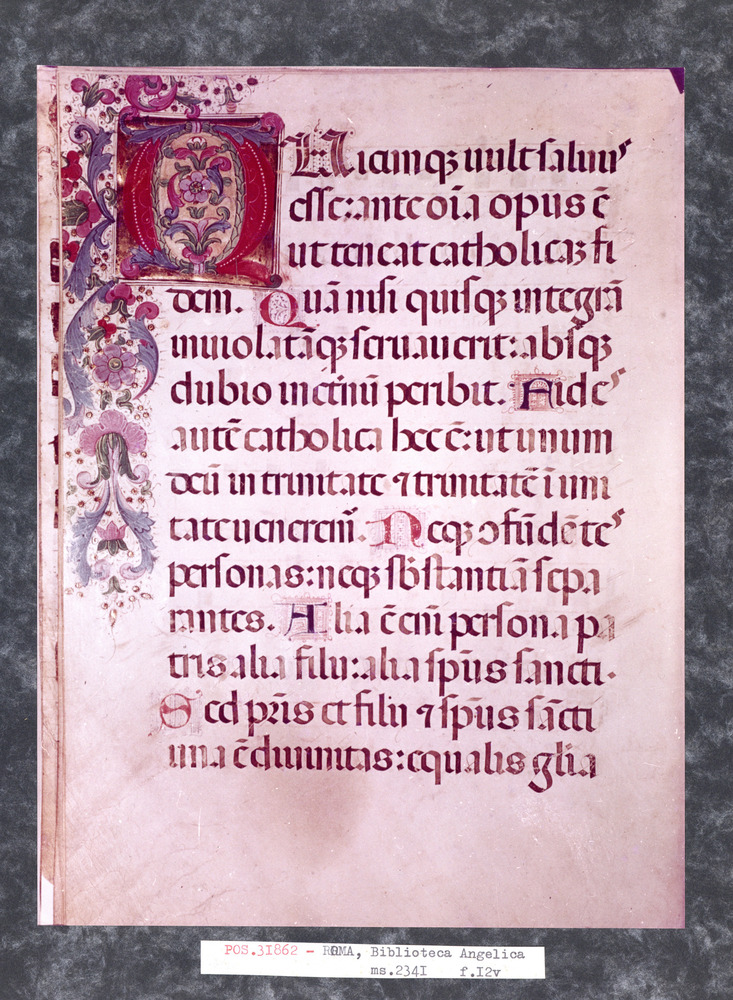 QUicunqꝫ uult saluus
esse: ante oīa opus ē
ut teneat catholicaꝫ fi
dem. Quā nisi quisqꝫ integrā
inuiolatāqꝫ seruauerit: absqꝫ
dubio inetnū peribit. Fides
autē catholica hec ē: ut unum
deū in trinitate ⁊ trinitatē ī uni
tate ueneremꝰ. Neqꝫ ɔfūdētes
personas: neqꝫ sbstantiā sepa
rantes. Alia ē eni persona pa
tris alia filii: alia spūs sancti.
Sed pr̄is et filii ⁊ spūs sācti
una ē diuinitas: equalis glīa
POS.31862 - ROMA, Biblioteca Angelica
ms.2341 f.12v